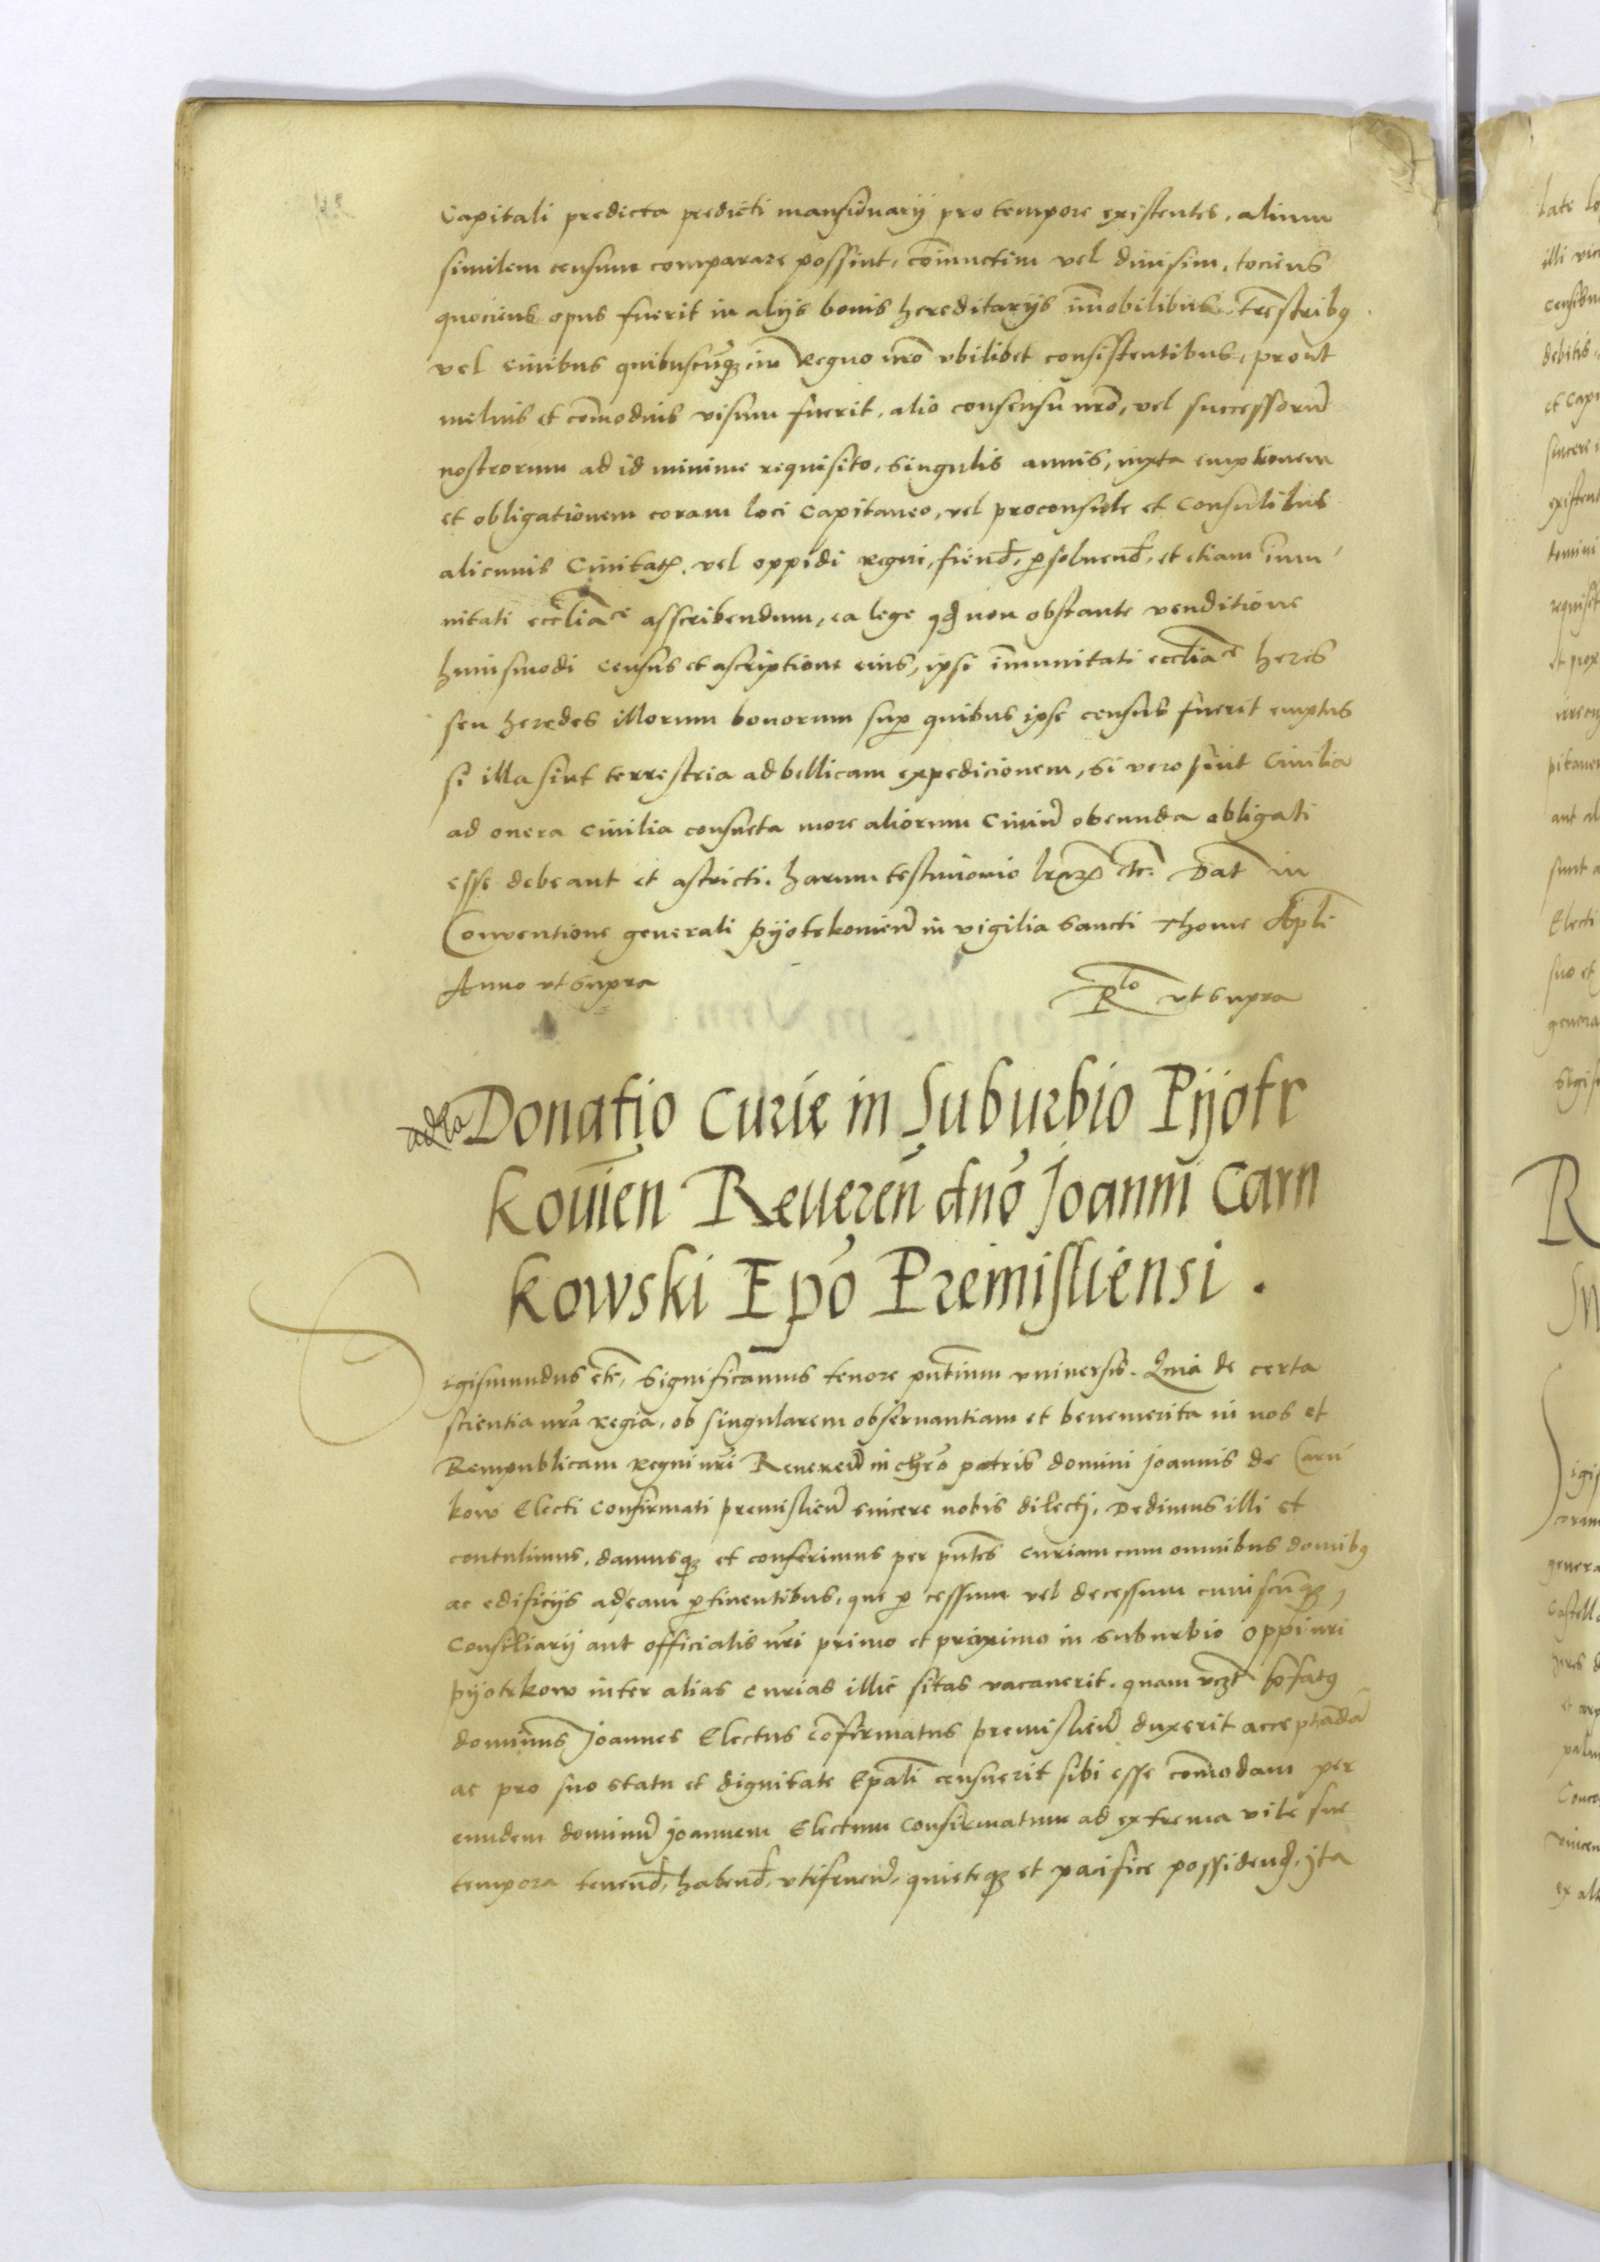 Capitali predicta predicti mansionarij pro tempore existentes, alium
similem censum comparare possint, coniunctim vel diuisim, tociens
quociens opus fuerit in alijs bonis hereditarijs im̄obilibus tr̄estribꝯ
vel ciuibus quibuscūqꝫ in Regno nr̄o vbilibet consistentibus, prout
melius et com̄odius visum fuerit, alio consensu nr̄o, vel successorū
nostrorum ad id minime requisito, singulis annis, iuxta emptionem
et obligationem coram loci Capitaneo, vel proconsule et Consulibus
alicuuis Ciuitatꝭ, vel oppidi regni, fiend̄, ꝑsoluend̄, et etiam im̄u
nitati eccl̄iace asscribendum, ea lege qđ non obstante venditione
huiusmodi census et ascriptione eius, ipsi im̄unitati eccl̄iace heres
seu heredes illorum bonorum suꝑ quibus ipse census fuerit emptus
si illa sint terrestria ad bellicam expedicionem, si vero sint Ciuilia
ad onera Ciuilia consueta more aliorum Ciuiū obeunda obligati
esse debeant et astricti. harum testimonio lr̄arꝝ etc̄. Dat̄ in
Conuentione generali Pijotrkouien̄ in vigilia Sancti Thome Apl̄i
Anno vt Supra
Rlo vt Supra
Donatio Curie in Suburbio Pijotr
kouien̄ Reueren̄ dn̄o Joanni Carn
kowski Ep̄o Premisliensi .
Sigismundus etc̄, Significamus tenore pn̄tium vniuersis. Quia de certa
scientia nr̄a regia, ob singularem obseruantiam et benemerita in nos et
Rempublicam regni nr̄i Reueren̄ in chr̄o patris domini Joannis de Carn
kow Electi Confirmati premislien̄ sincere nobis dilecti, Dedimus illi et
contulimus, damusqꝫ et conferimus per pn̄tes curiam cum omnibus domibꝯ
ac edificijs ad eam ꝑtinentibus, que ꝑ cessum vel decessum cuiuscūqꝫ
Consiliarij aut officialis nr̄i primo et proximo in suburbio oppi nr̄i
Pijotrkow inter alias curias illic sitas vacauerit. quam vcꝫt p̄fatꝯ
dominus Joannes Electus Cōfirmatus premislien̄ duxerit acceptādā
ac pro suo statu et dignitate Ep̄ali censuerit sibi esse com̄odam per
eundem dominū Joannem Electum Confirmatum ad extrema vite sue
tempora tenend̄, habend̄, vtifruen̄, quieteqꝫ et pacifice possidend̄, ita